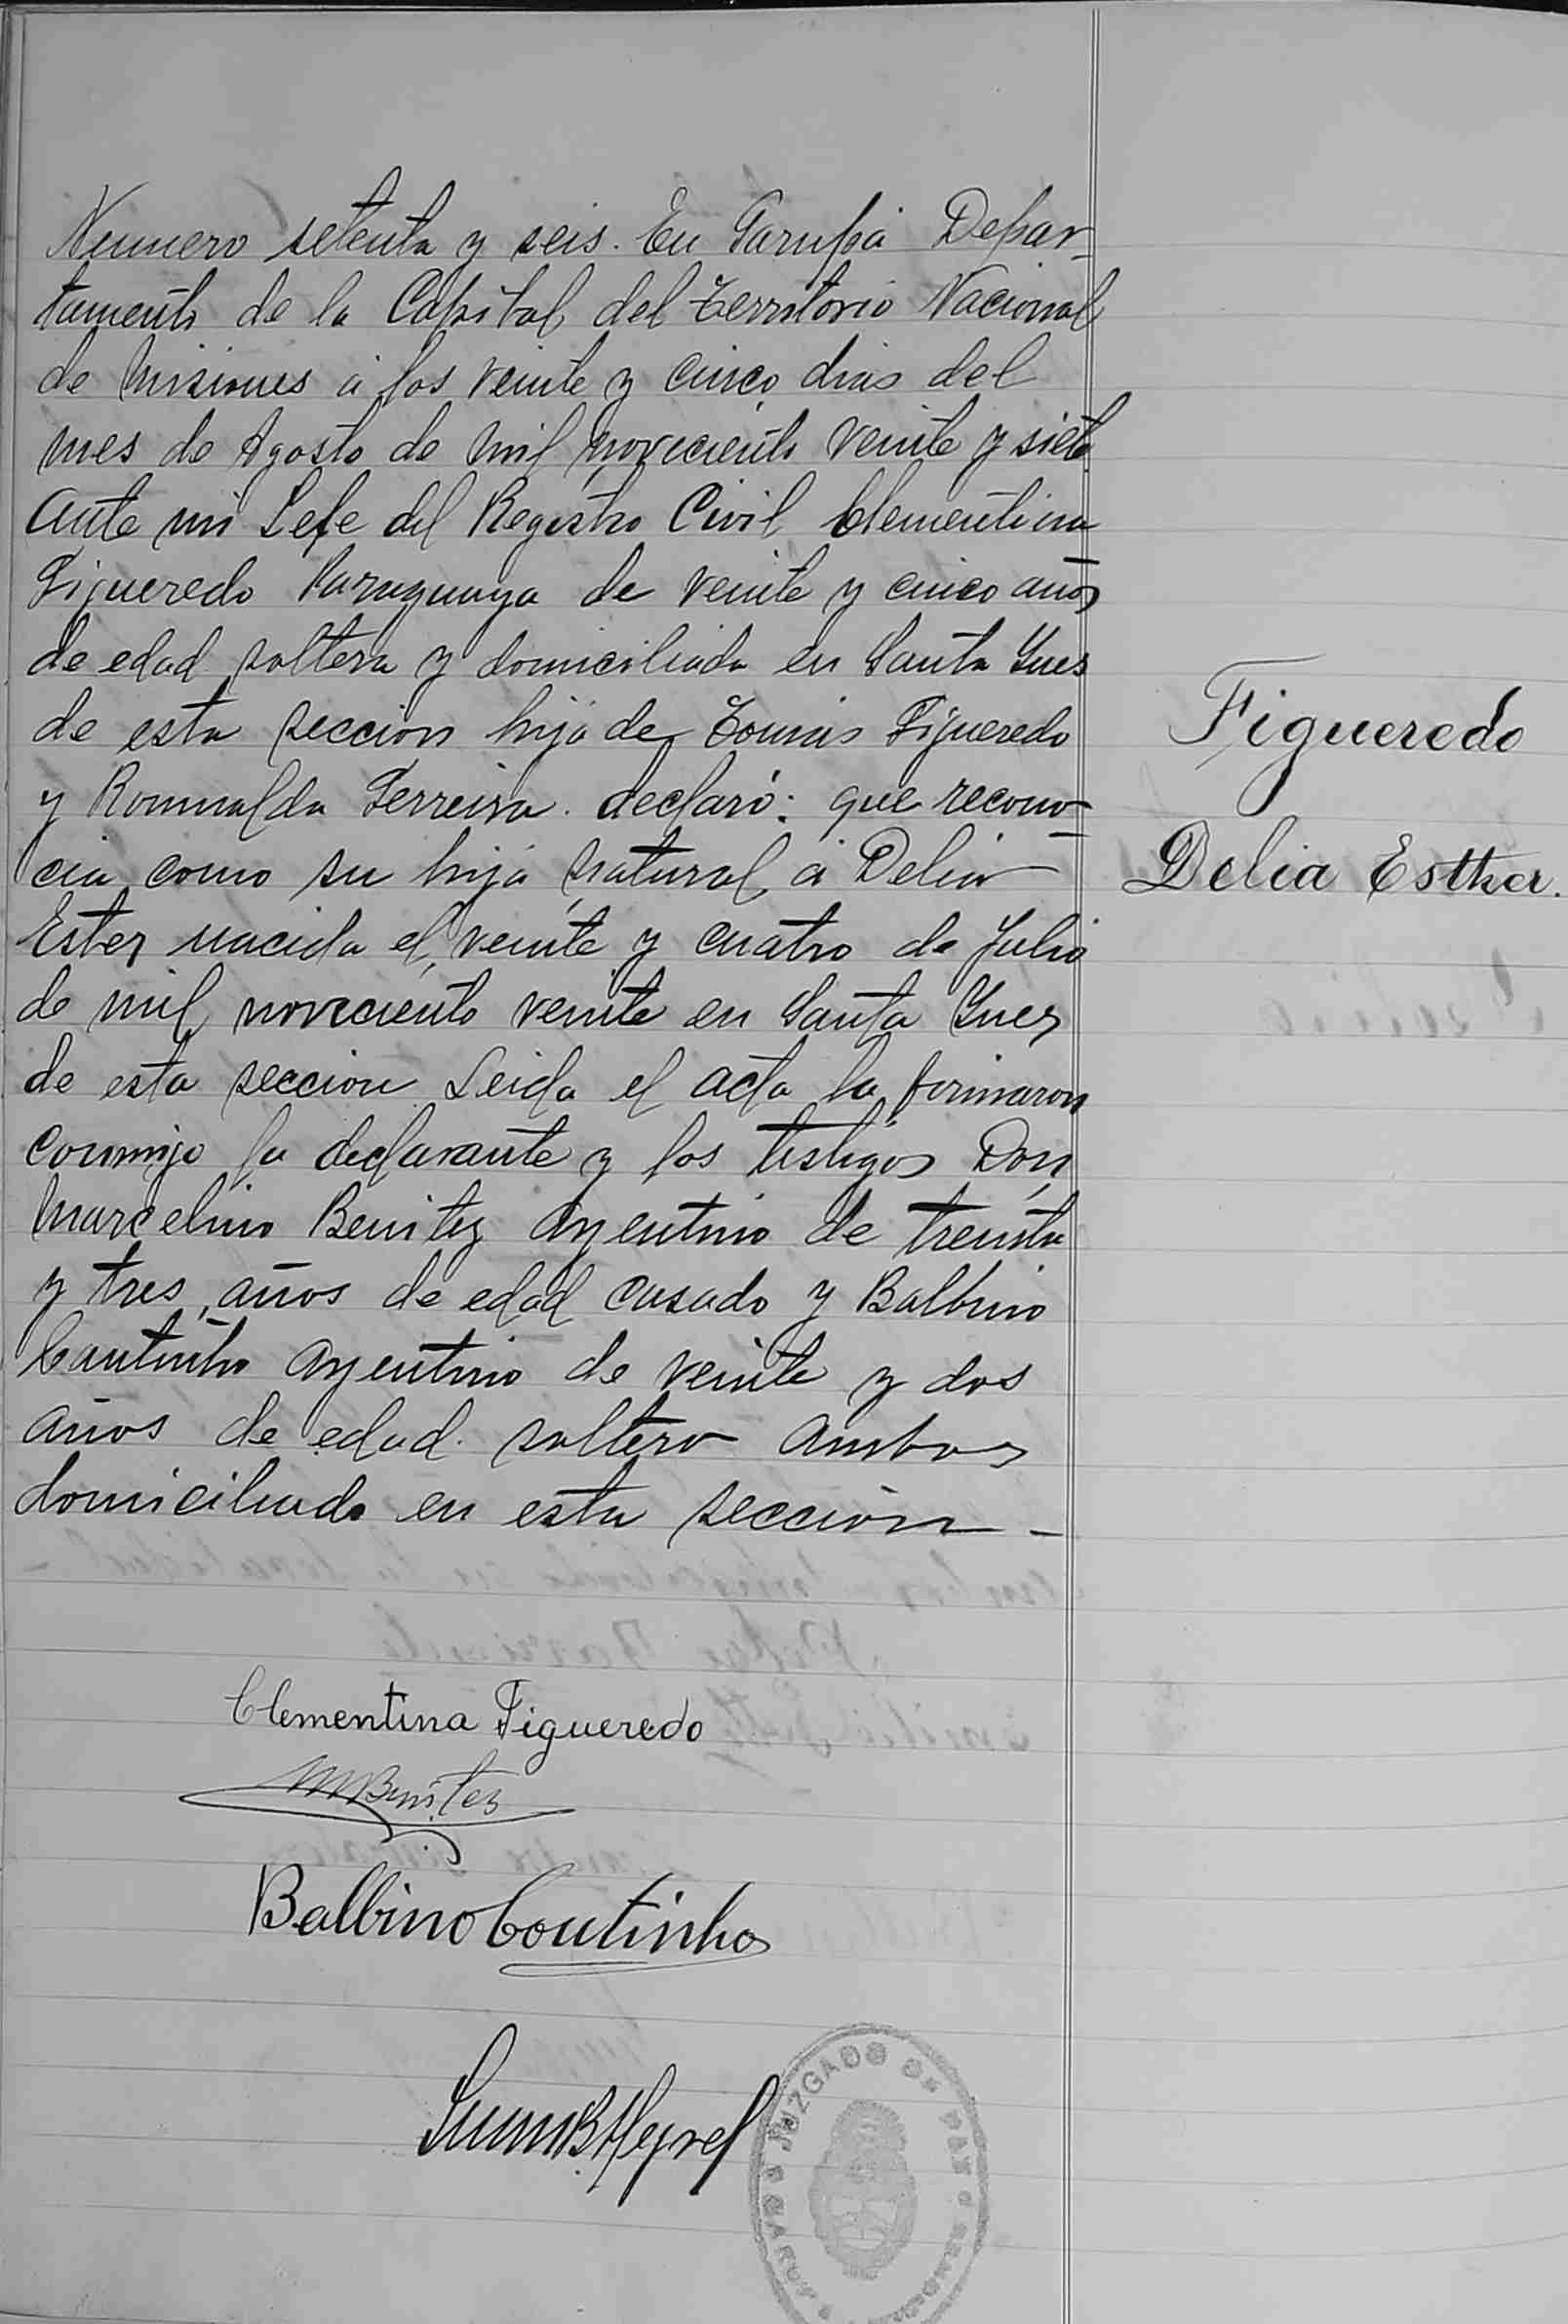 Numero setenta y seis. En Garupá Depar-
tamento de la Capital del Territorio Nacional
de Misiones á los veinte y cinco dias del
mes de Agosto de mil noveciento veinte y siete
Ante mi Jefe del Registro Civil Clementina
Figueredo Paraguaya de veinte y cinco años
de edad soltera y domiciliada en Santa Ynes
de esta seccion hija de Tomás Figueredo
y Romualda Ferreira. declaró: que recono-
cia como su hija natural á Delia
Ester nacida el veinte y cuatro de Julio
de mil noveciento veinte en Santa Ynes
de esta seccion Leida el acta la firmaron
conmigo la declarante y los testigos Don
Marcelino Benitez Argentino de treinta
y tres, años de edad casado y Balbino
Cautinho Argentino de veinte y dos
años de edad. soltero ambos
domiciliado en esta sección -
Figueredo
Delia Esther.
Clementina Figueredo
MBenitez
Balbino Coutinho
JUZGADO DE PAZ